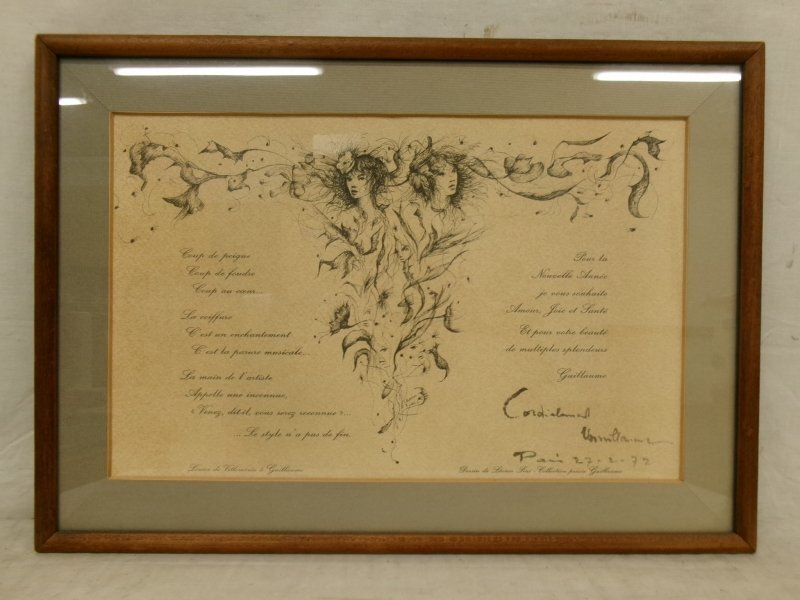 Coup de peigne
Coup de foudre
Coup au cœur...
La coiffure
C'est un enchantement
C'est la parure musicale...
La main de l'artiste
Appelle une inconnue,
« Venez, dit-il, vous serez reconnue »...
... Le style n'a pas de fin.
Louise de Vilmorin à Guillaume
Pour la
Nouvelle Année
je vous souhaite
Amour, Joie et Santé
Et pour votre beauté
de multiples splendeurs
Guillaume
Cordialement
Guillaume
Paris 27-2-72
Dessin de Léonor Fini - Collection privée Guillaume